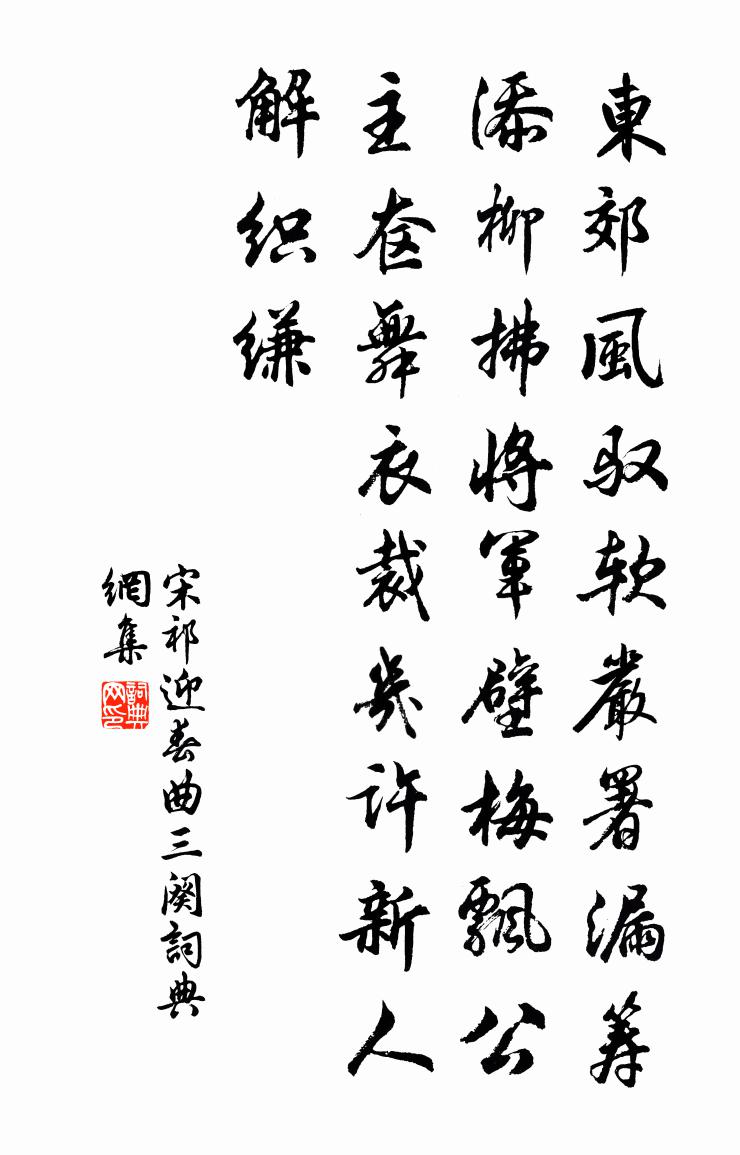 東郊風馭软嚴署漏筹
添柳拂將軍壁梅飄公
主奁舞衣裁幾許新人
解织缣
宋祁迎春曲三阕詞典
網集
詞典
网印